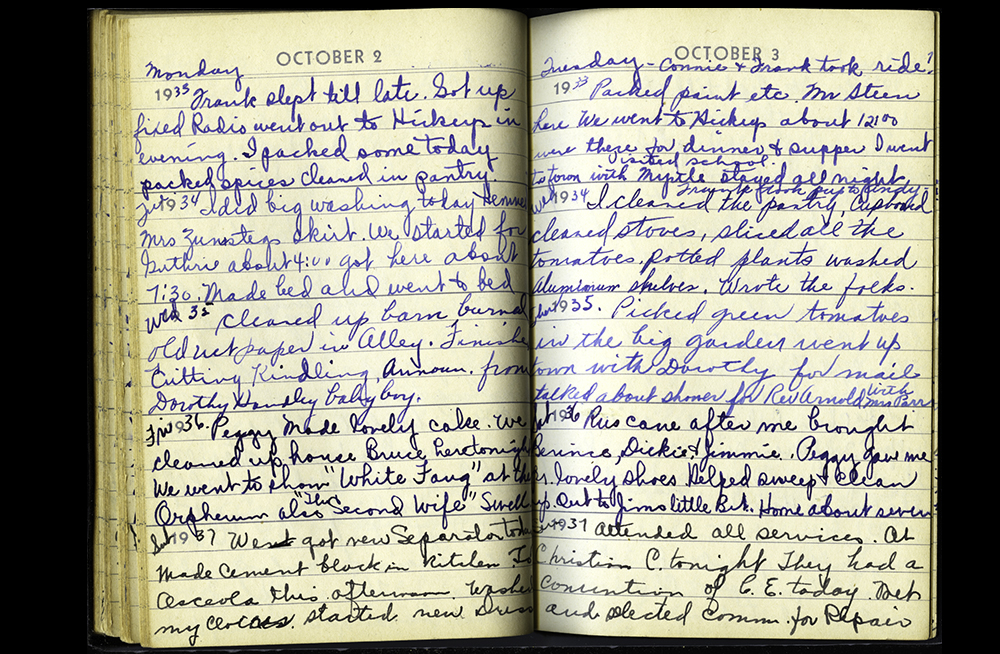 OCTOBER 2
Monday
1933 Frank slept till late. Got up
fixed Radio went out to Hickeys in
evening. I packed some today
packed spices cleaned in pantry
1934 I did big washing today Hemmed
Mrs Zumstegs skirt. We started for
Guthrie about 4:00 got here about
7:30. Made bed and went to bed
Wed 35 cleaned up barn burned
old wet paper in Alley. Finished
Cutting Kindling, Announ. from
Dorothy Handley baby boy.
Fri 1936. Peggy made lovely cake. We
cleaned up house Bruce here tonight
We went to show "White Fang" at the
Orpheum also "Third Second Wife" Swell
Sat 1937 We got new Separator today
Made cement block in kitchen To
Osceola this afternoon. Washed
my started new Dress
OCTOBER 3
Tuesday - Connie & Frank took ride?
1933 Packed paint etc. Mr Steen
here We went to Hickeys about 12:00
were there for dinner & supper I went
visited school.
to town with Myrtle stayed all night
Frank took pup to
Wed 1934 I cleaned the pantry, Cupboard
cleaned stoves, sliced all the
tomatoes. potted plants washed
Aluminum shelves. Wrote the folks.
1935. Picked green tomatoes
in the big garden went up
town with Dorothy for mail
talked about shower for Rev Arnold with
Mrs Parr
Sat 1936 Rus came after me brought
Bernice, Dickie & Jimmie. Peggy gave me
pr. lovely shoes Helped sweep & clean
up. Out to Jims little Bit. Home about seven
Sun 1937 Attended all services. At
Christian C. tonight They had a
convention of C. E. today. Met
and elected Comm. for Repair